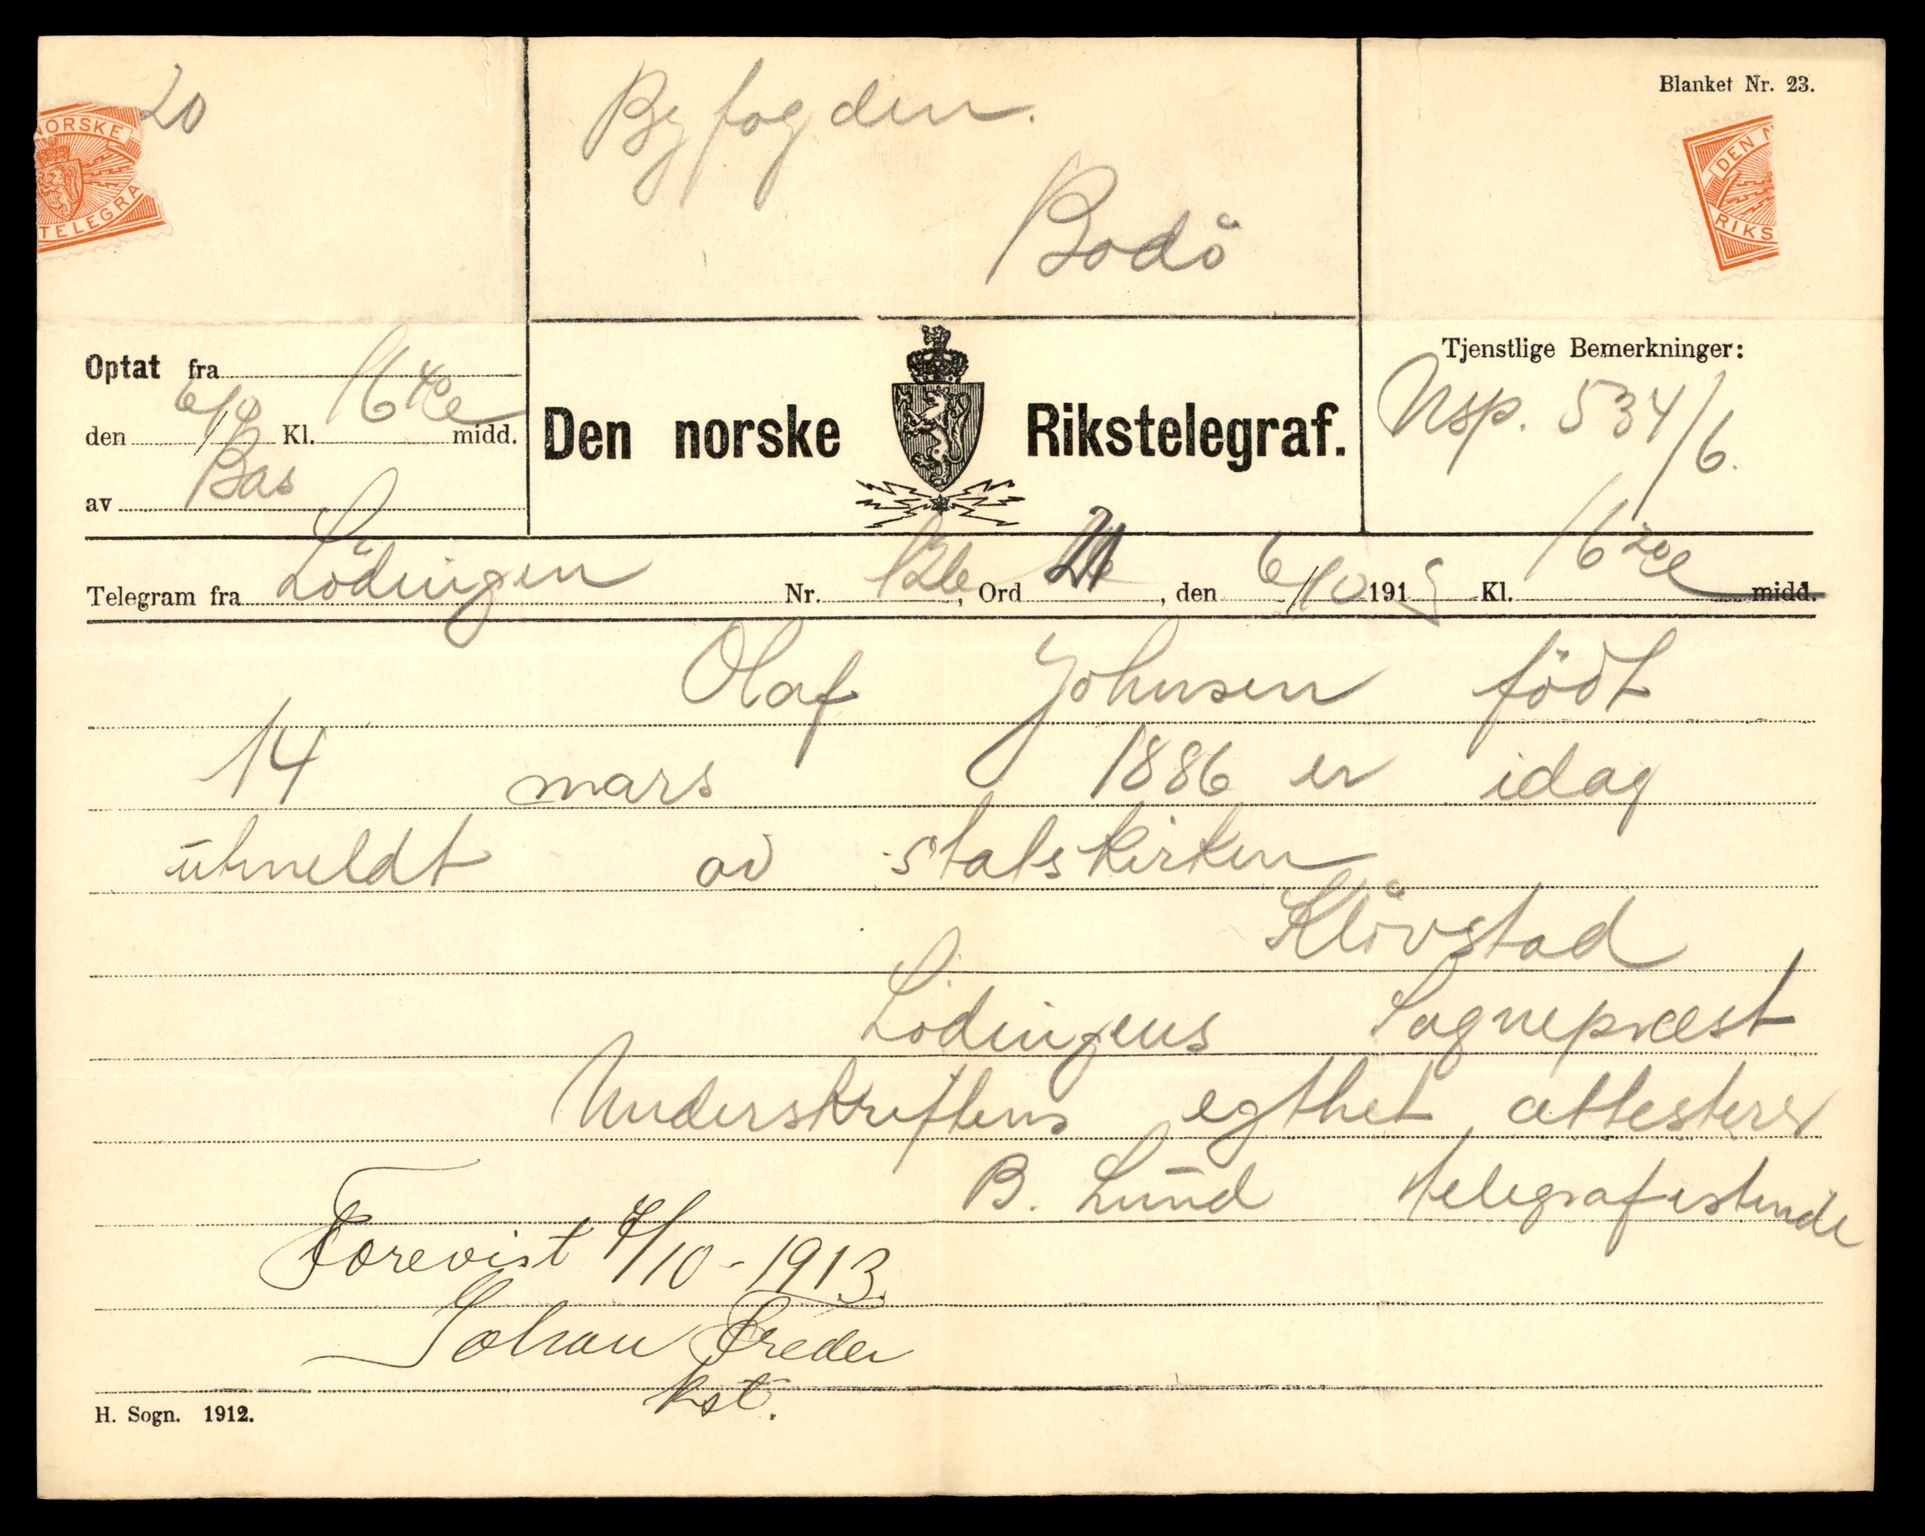 20
NORSKE
TELEGRA
Byfogden.
Bodö
Blanket Nr. 23.
DEN N
RIKS
Optat fra
den 6/10 Kl. 16 40 e midd.
av Bas
Den norske Rikstelegraf.
Tjenstlige Bemerkninger:
Nsp. 534/6.
Telegram fra Lödingen Nr. 126, Ord 21, den 6/10 191 Kl. 16 20 e midd.
Olaf Johnsen födt
14 mars 1886 er idag
utmeldt av statskirken
Klövstad
Lödingens Sogneprest
Underskriftens egthet attesteres
B. Lund telegrafistinde
Forevist 7/10-1913.
Johan
kst.
H. Sogn. 1912.